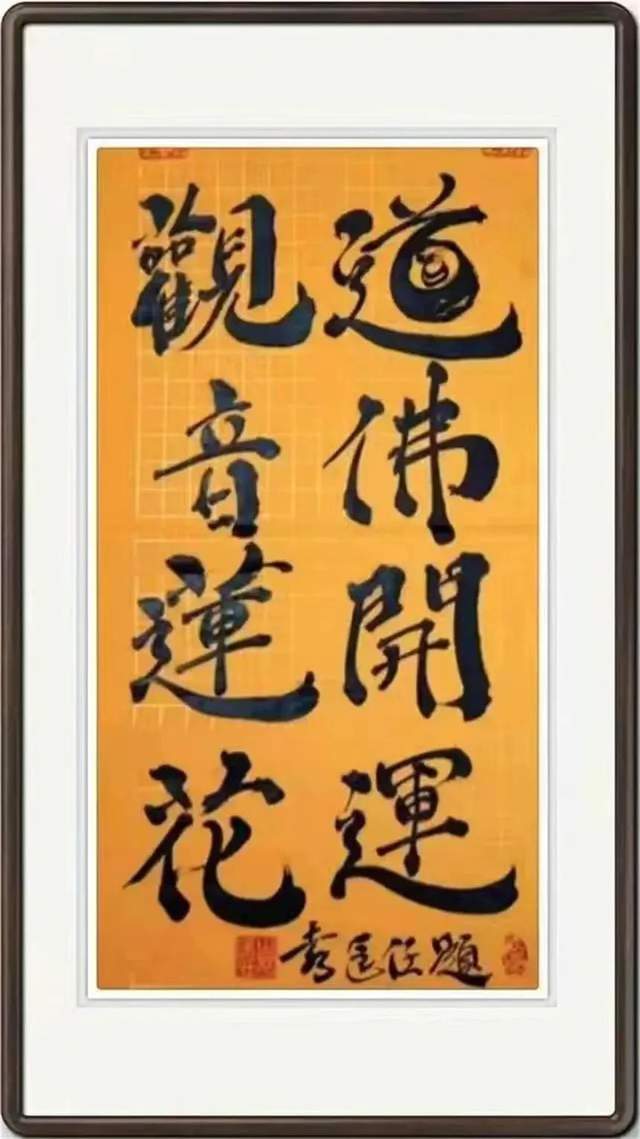 道佛開運
觀音蓮花
題